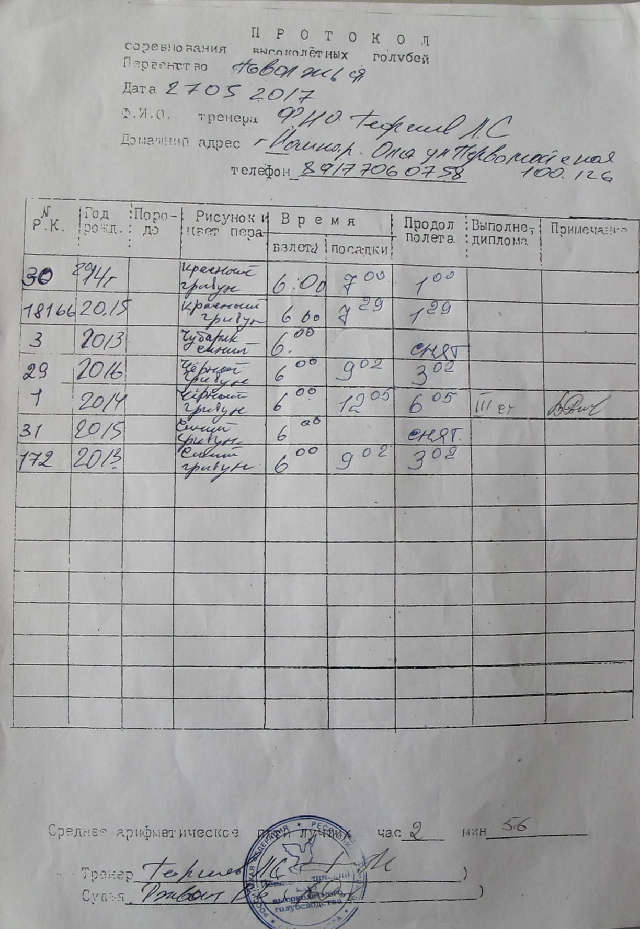 ПРОТОКОЛ
соревнования высоколётных голубей
Первенство Поволжья
Дата 27 05 2017
Ф.И.О. тренера ФИО
Домашний адрес г Йошкар. Ола ул Первомайская
телефон 89177060758 100.126
N Р.К. Год рожд. Поро-до Рисунок и цвет пера Время взлета посадки Продол полета Выполнет диплома Примечание
30 2914г Красный гривун 6:00 7 00 1 00
18166 2015 Красный гривун 6 00 7 29 1 29
3 2013 Чубарый синий 6. 00 снят
29 2016 Чёрный гривун 6 00 9 02 3 02
1 2014 Чёрный гривун 6 00 12 05 6 05 III ст
31 2015 Синий гривун 6 00 снят.
172 2013 Синий гривун 6 00 9 02 3 02
Среднее арифметическое пяти лучших час 2 мин 56
Тренер )
Судья )